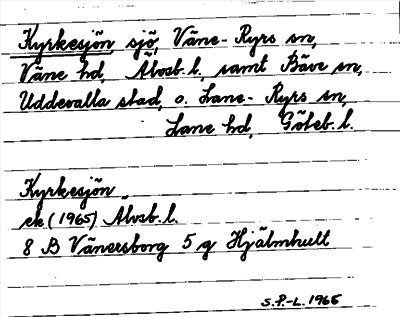 Kyrkesjön sjö, Väne-Ryrs sn,
Väne hd, Älvsb. l., samt Bäve sn,
Uddevalla stad, o. Lane-Ryrs sn,
Lane hd, Göteb. l.
Kyrkesjön
ek (1965) Älvsb. l.
8 B Vänersborg 5 g Hjälmhult
S.P.-L. 1965